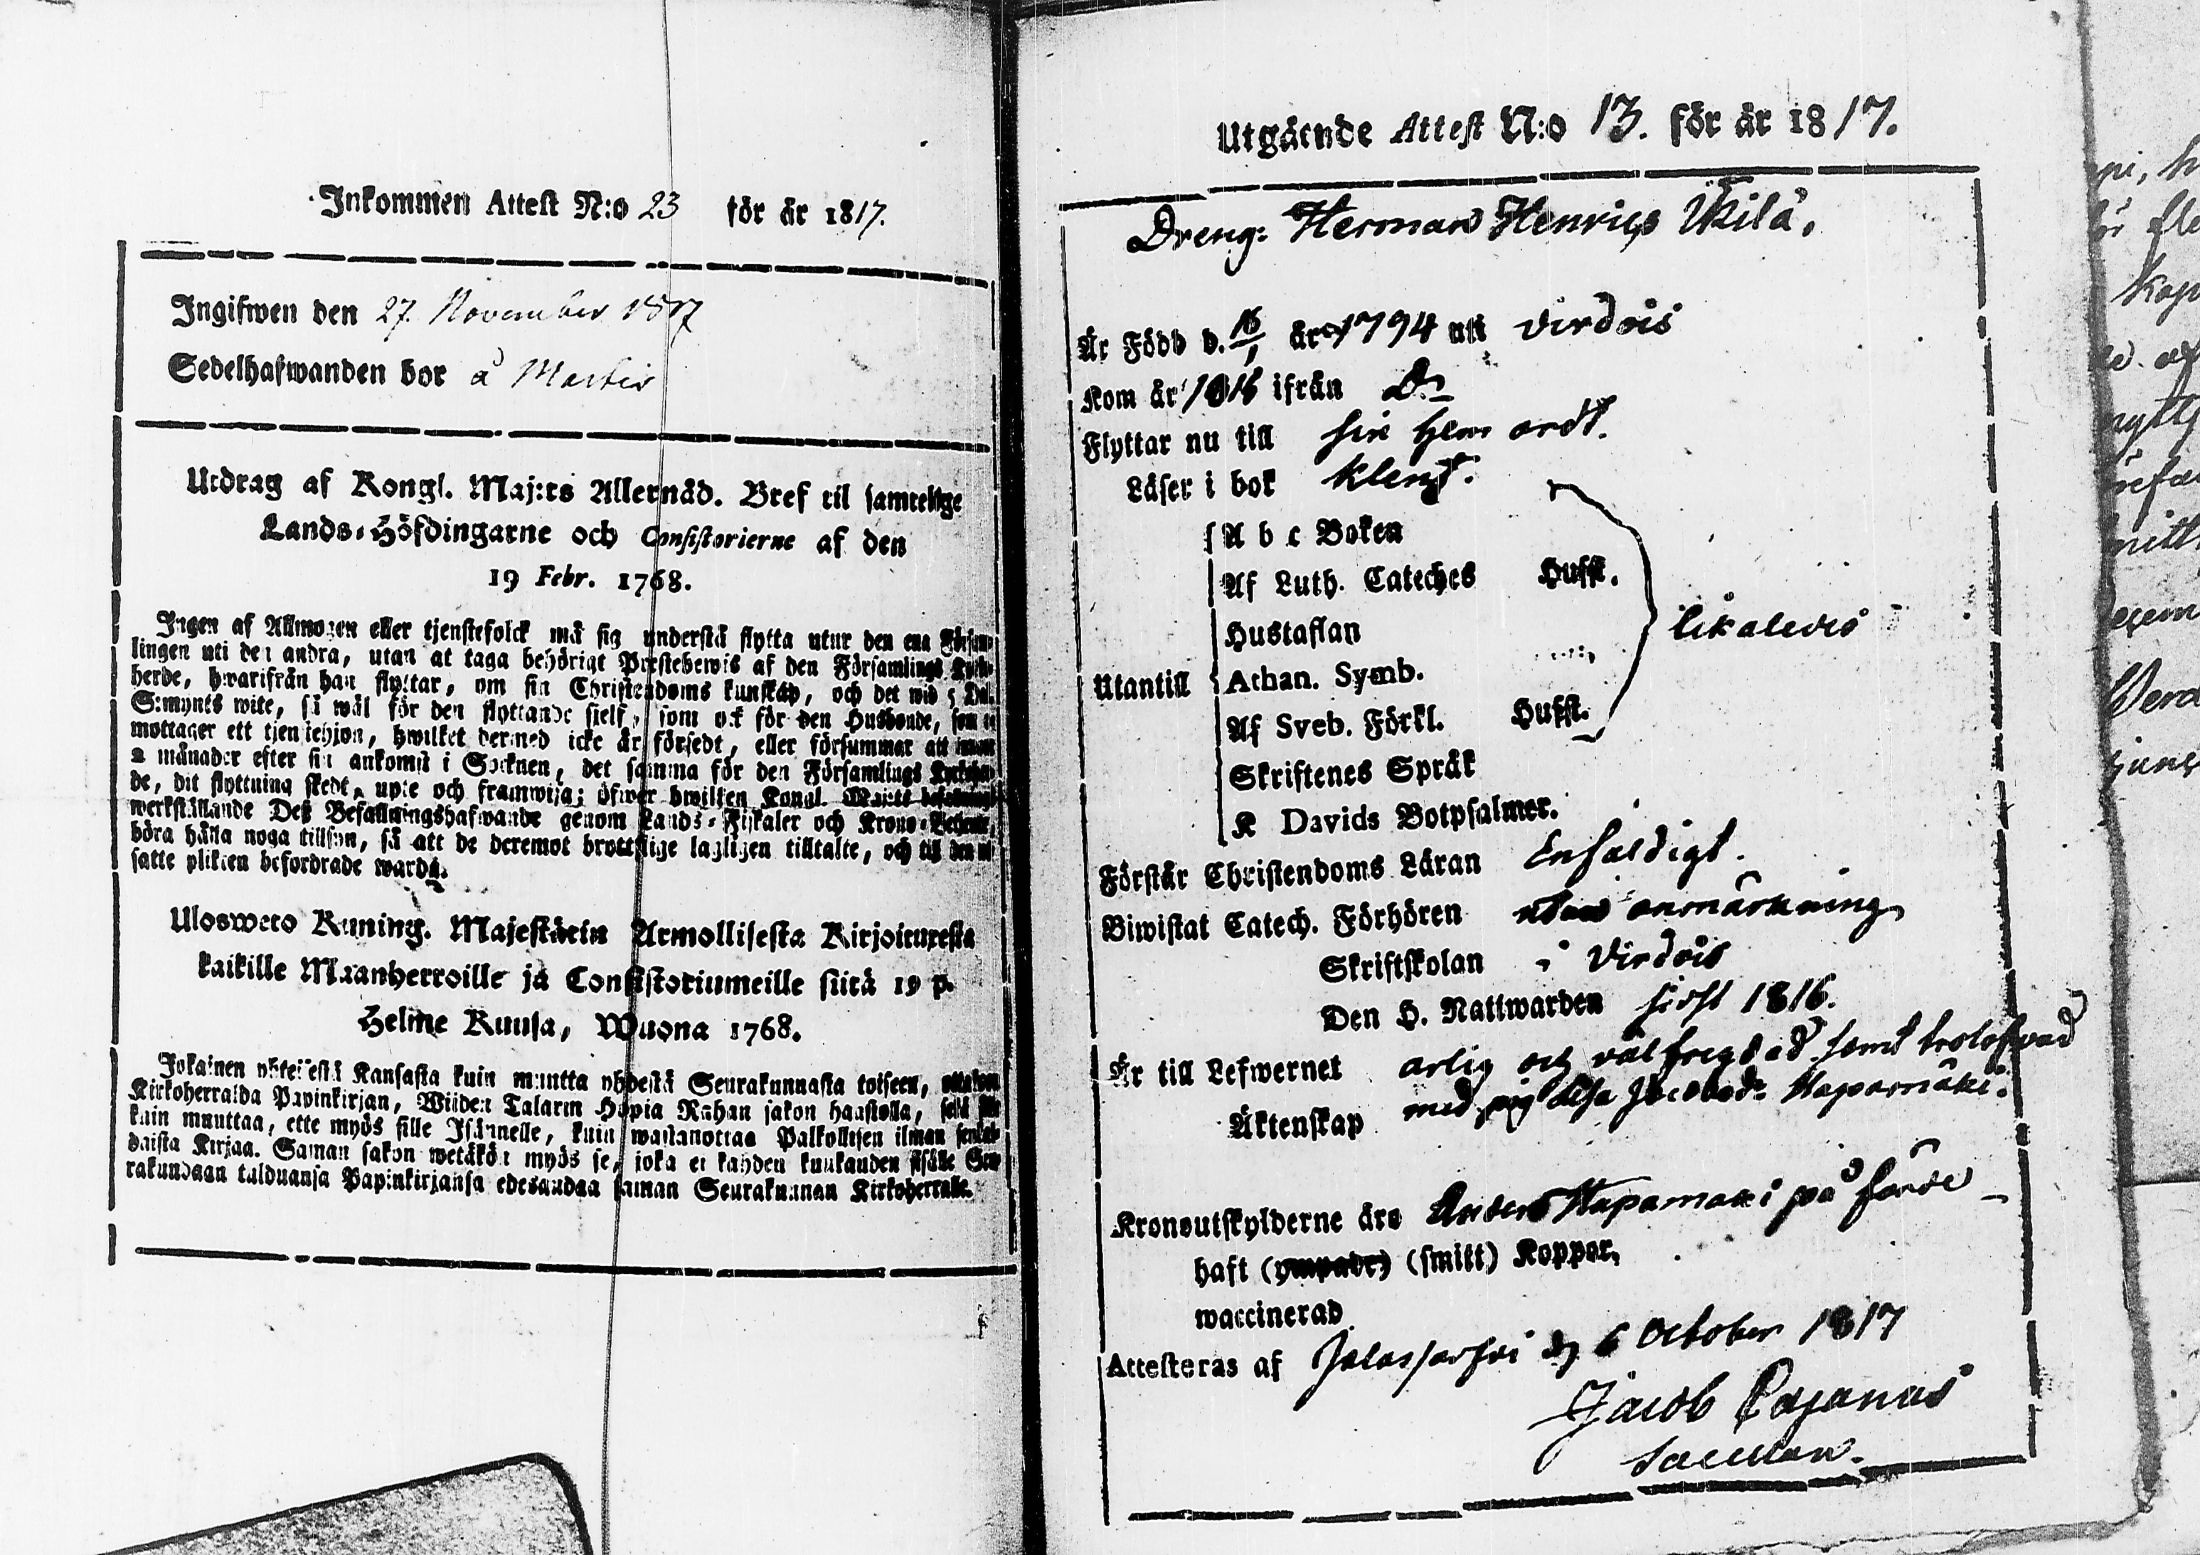 Inkommen Attest N:o 23 för år 1817.
Ingifwen den 27. November 1817
Sedelhafwanden bor å Martis
Utdrag af Kongl. Maj:ts Allernåd. Bref til samtelige
Lands-Höfdingarne och Consistorierne af den
19 Febr. 1768.
Ingen af Allmogen eller tjenstefolck må sig understå flytta utur den ena Försam-
lingen uti den andra, utan at taga behörigt Prestebewis af den Församlings Kyrko-
herde, hwarifrån han flyttar, om sin Christendoms kunskap, och det wid 5 Dal.
S:mynts wite, så wäl för den flyttande sielf, som ock för den Husbonde, som
mottager ett tjenstehjon, hwilket dermed icke är försedt, eller försummar att innom
2 månader efter sin ankomst i Socknen, det samma för den Församlings Kyrkoher-
de, dit flyttning skedt, upte och framwisa; öfwer hwilket Kongl. Maj:ts befallnings
werkställande Deß Befallningshafwande genom Lands-Fiskaler och Krono-Betjente,
böra hålla noga tillsyn, så att de deremot brottslige lagligen tilltalte, och til den
satte plikten befordrade warda.
Uloswero Kuning. Majestätein Armollisesta Kirjoituxesta
kaikille Maanherroille ja Consistoriumeille siitä 19 p.
Helme Kuusa, Wuona 1768.
Jokainen yhteisestä Kansasta kuin muutta yhdestä Seurakunnasta toiseen, ottakon
Kirkoherralda Papinkirjan, Wiiden Talarin Hopia Rahan sakon haastolla, sekä sille
kuin muuttaa, ette myös sille Isännelle, kuin wastanottaa Palkollisen ilman
daista Kirjaa. Saman sakon wetäkön myös se, joka ei kahden kuukauden sisälle Seu-
rakundaan tulduansa Papinkirjansa edesandaa saman Seurakunnan Kirkoherralle.
Utgående Attest N:o 13. för år 1817.
Dreng: Herman Henrics Ükilä.
Är Född d. 16/1 år 1794 uti Virdois
Kom år 1816 ifrån D:o
Flyttar nu till sin hem ordt.
Läser i bok klent.
A b c Boken
Af Luth. Cateches Hufft.
Hustaflan
likaledes
Utantill
Athan. Symb.
Af Sveb. Förkl. Hufft.
Skriftenes Språk
K Davids Botpsalmer.
Förstår Christendoms Läran Enfaldigt.
Biwistat Catech. Förhören utan anmärkning
Skriftskolan i Virdois
Den H. Nattwarden sidst 1816.
Är till Lefwernet ärlig och välfregdad samt trolofwad
Äktenskap med pig Jacobsd:r Haapamäki.
Kronoutskylderne äro Anders Hapamäki på förde
haft (ympade) (smitt) Koppor,
waccinerad
Attesteras af Jalasjarfvi d. 6 October 1817
Jacob Pajanus
Sacellan.